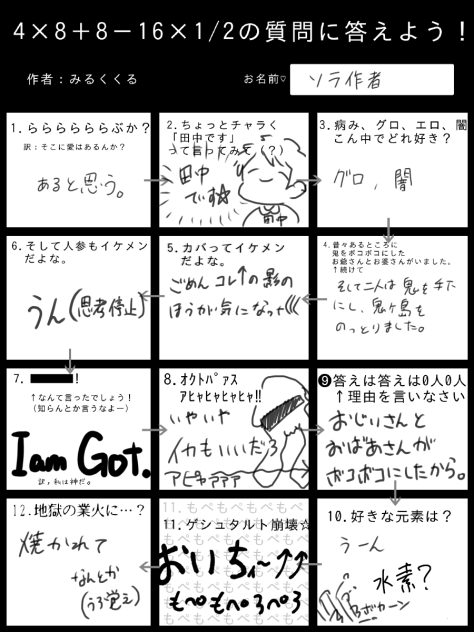 4×8+8－16×1/2の質問に答えよう！
作者：みるくくる
お名前♡
ソラ作者
1.らららららぶか？
訳：そこに愛はあるんか？
あると思う。
2.ちょっとチャラく
「田中です」
って言ってみて（？）
田中
です☆
田中
3.病み、グロ、エロ、闇
こん中でどれ好き？
グロ、闇
4.昔々あるところに
鬼をボコボコにした
お爺さんとお婆さんがいました。
↑続けて
そして二人は鬼を手下
にし、鬼ヶ島を
のっとりました。
5.カバってイケメン
だよな。
ごめんコレ↑の影の
ほうが気になった
6.そして人参もイケメン
だよな。
うん(思考停止)
7.！
↑なんて言ったでしょう！
（知らんとか言うなよー）
I am Got.
訳,私は神だ。
8.ｵｸﾄﾊﾟｧｽ
ｱﾋｬﾋｬﾋｬﾋｬ!!
いやいや
イカもいいだろ
アピャァァァ
❾答えは答えは0人0人
↑理由を言いなさい
おじいさんと
おばあさんが
ボコボコにしたから。
10.好きな元素は？
うーん
水素?
ボカーン
11.もぺもぺもぺもぺ
11.ゲシュタルト崩壊☆
おいちぃ~↑↑
もぺもぺろぺろ
12.地獄の業火に…？
焼かれて
なんとか
(うろ覚え)